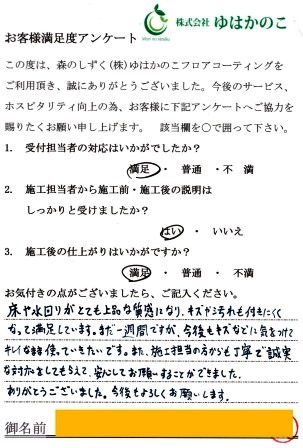 株式会社 ゆはかのこ
お客様満足度アンケート
この度は、森のしずく(株)ゆはかのこフロアコーティングを
ご利用頂き、誠にありがとうございました。今後のサービス、
ホスピタリティ向上の為、お客様に下記アンケートへご協力を
賜りたくお願い申し上げます。　該当欄を○で囲って下さい。
1.　受付担当者の対応はいかがでしたか?
満足 ・ 普通 ・ 不 満
2.　施工担当者から施工前・施工後の説明は
しっかりと受けましたか?
はい ・ いいえ
3.　施工後の仕上がりはいかがですか?
満足 ・ 普通 ・ 不満
お気付きの点がございましたら、ご記入ください。
床や水回りがとても上品な質感になり、キズや汚れも付きにくく
なって満足しています。まだ一週間ですが、今後もキズなどに気をつけて
キレイな使っていきたいです。また、施工担当の方からも丁寧で誠実
な対応をしてもらえて、安心してお願いすることができました。
ありがとうございました。今後もよろしくお願いします。
御名前